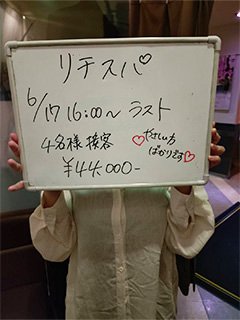 リチスパ♡
6/17 16:00〜 ラスト
4名様接客
♡やさしい方
ばかりです♡
¥44.000-